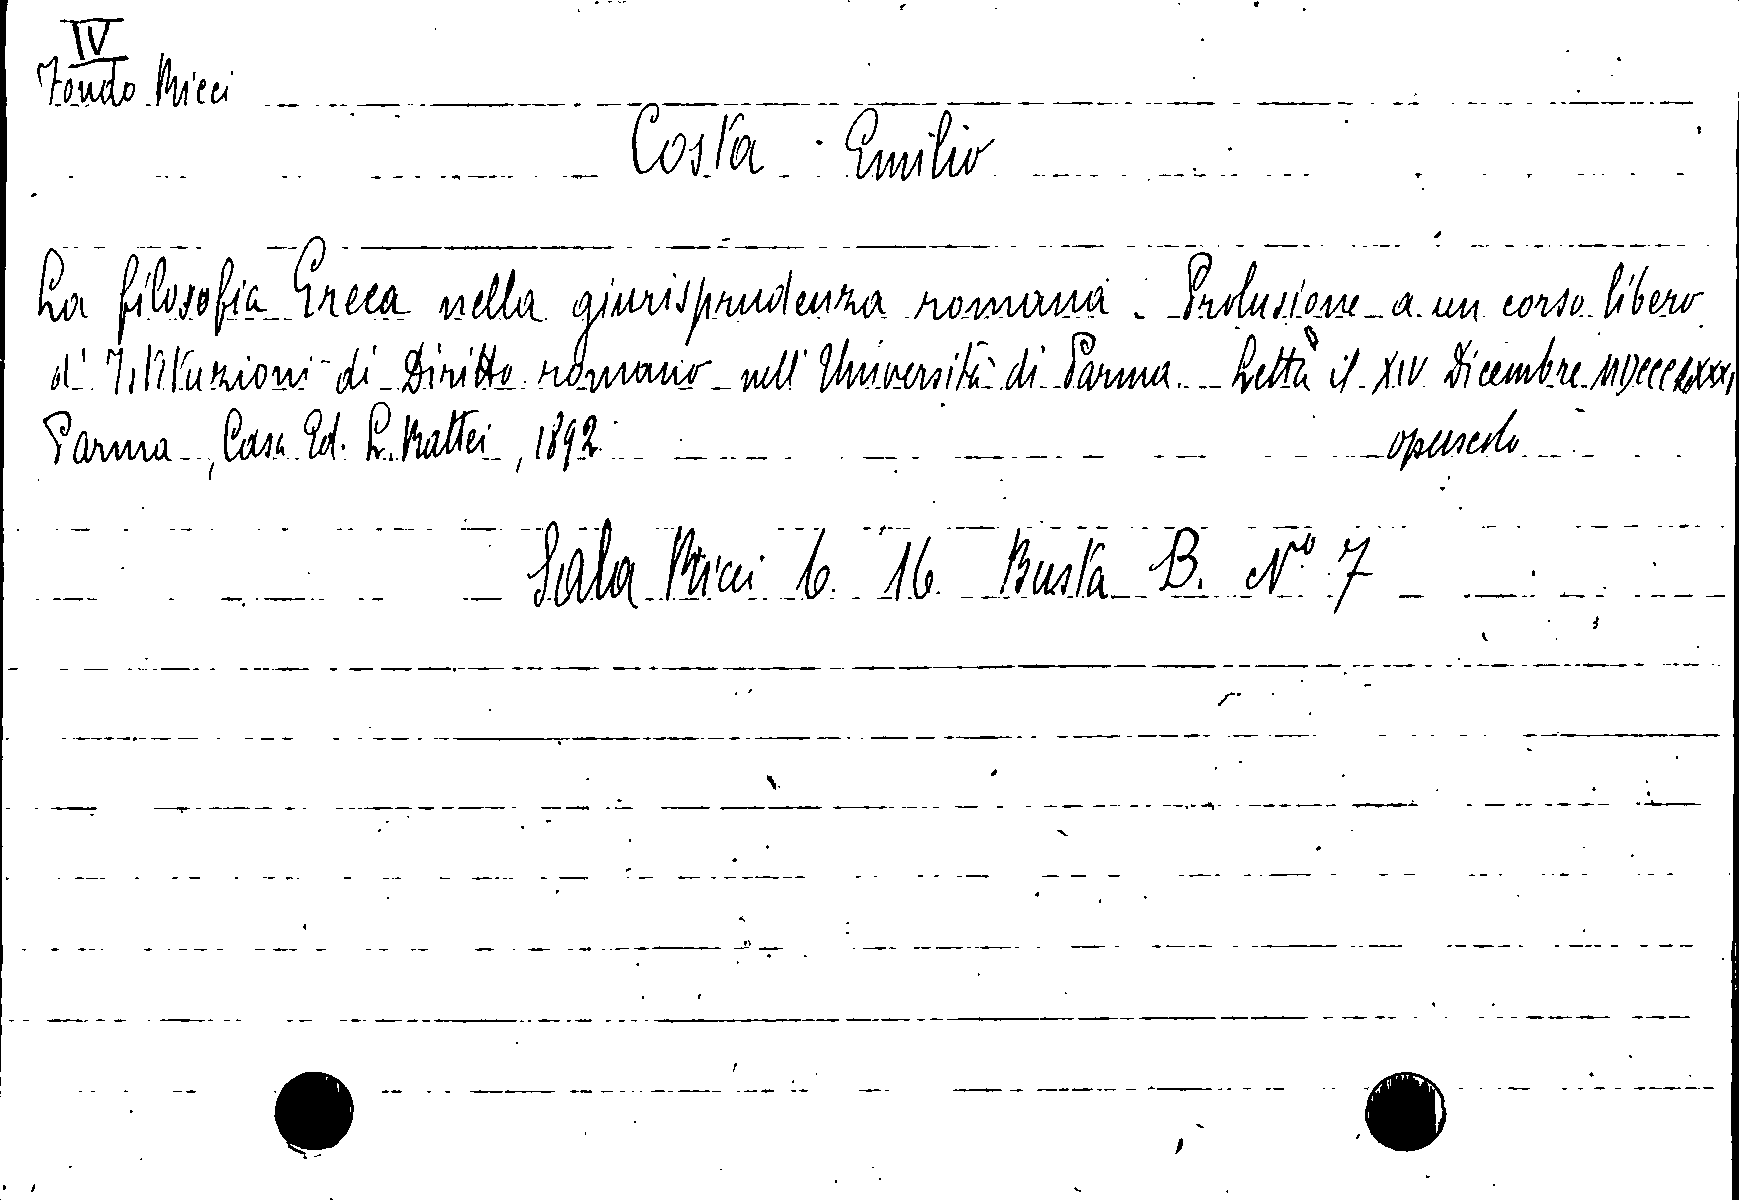 IV
Fondo Ricci
Costa Emilio
La filosofia Greca nella giurisprudenza romana. Prolusione a un corso libero
di Istituzioni di Diritto romano nell'Università di Parma. Letta il XIV Dicembre
Parma, Casa Ed. L. Battei, 1892 opuscolo
Sala Ricci b. 16 Busta B. N° 7